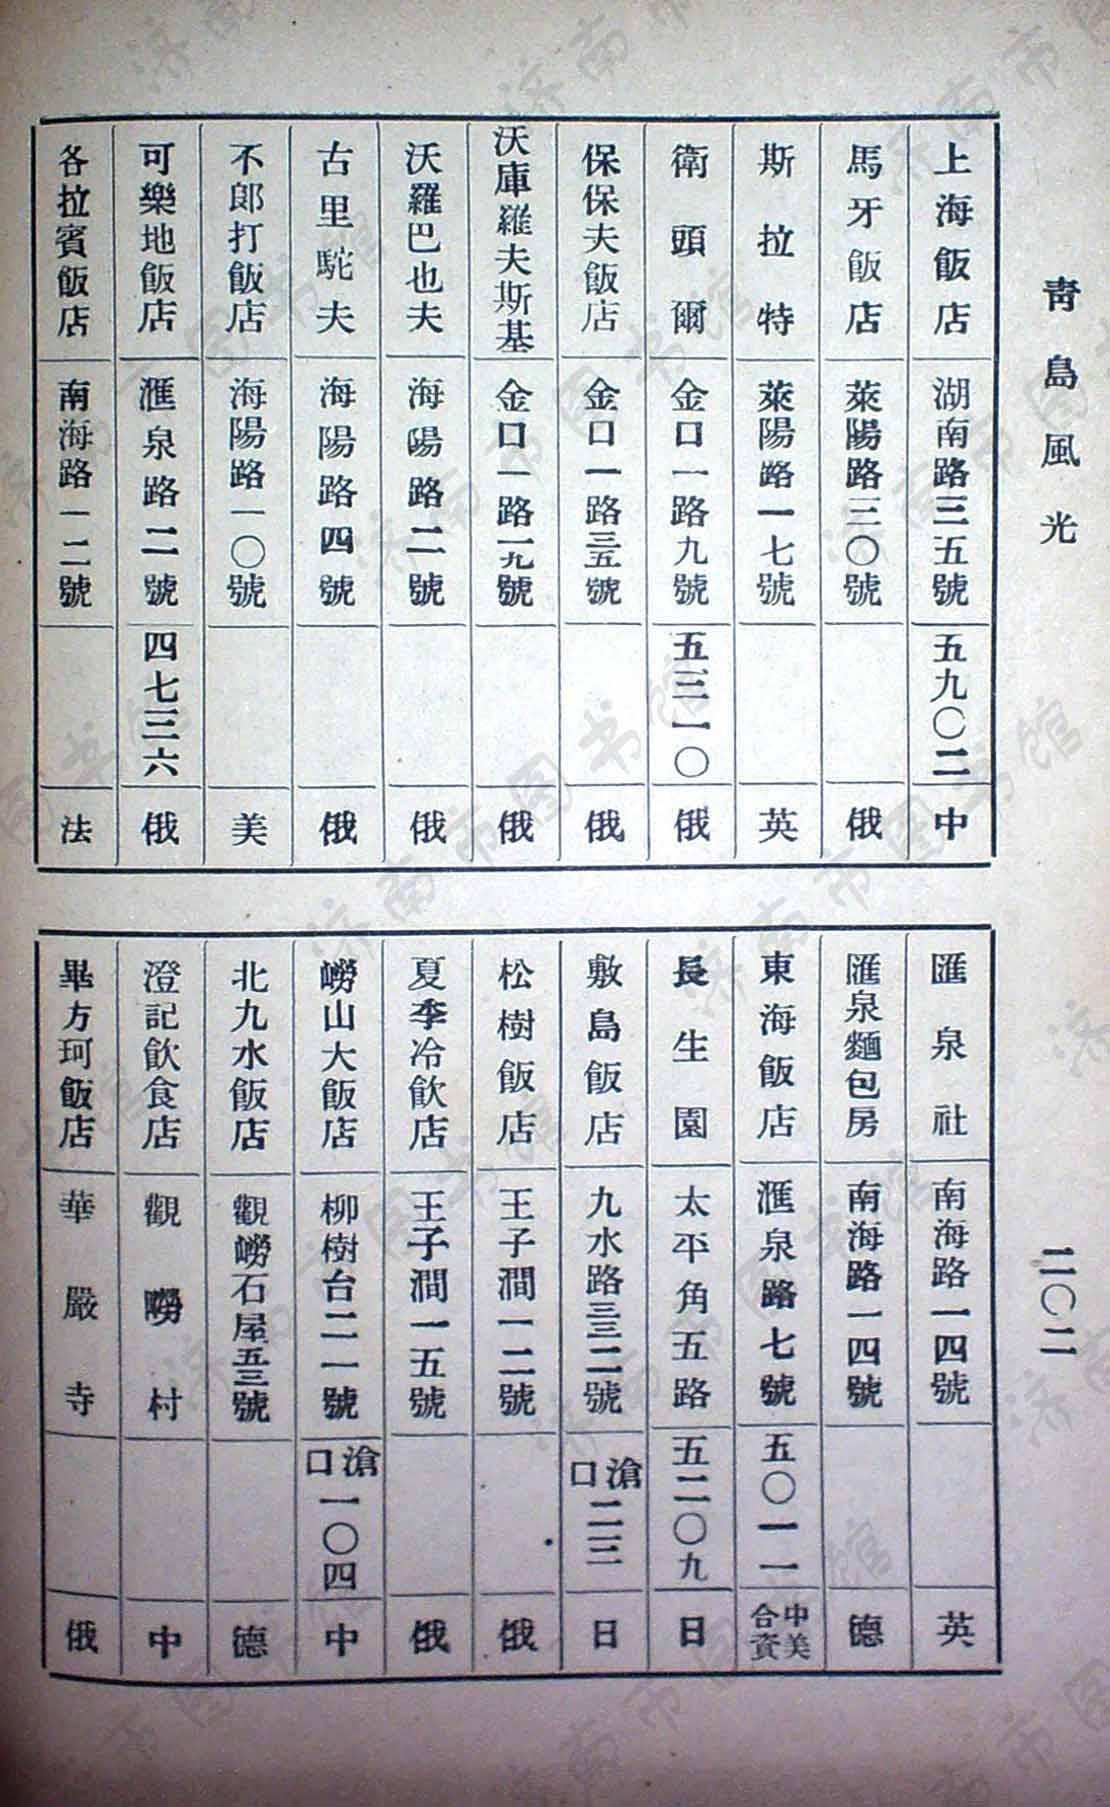 青島風光
二〇二
上海飯店 湖南路三五號 五九〇二 中
馬牙飯店 萊陽路三〇號 俄
斯拉特 萊陽路一七號 英
衛頭爾 金口一路九號 五三一〇 俄
保保夫飯店 金口一路三五號 俄
沃庫羅夫斯基 金口一路一九號 俄
沃羅巴也夫 海陽路二號 俄
古里駝夫 海陽路四號 俄
不郎打飯店 海陽路一〇號 美
可樂地飯店 滙泉路二號 四七三六 俄
各拉賓飯店 南海路一二號 法
匯泉社 南海路一四號 英
匯泉麵包房 南海路一四號 德
東海飯店 滙泉路七號 五〇一一 中美合資
長生園 太平角五路 五二〇九 日
敷島飯店 九水路三三二號 滄口二三 日
松樹飯店 王子澗一二號 俄
夏季冷飲店 王子澗一五號 俄
嶗山大飯店 柳樹台二一號 滄口一〇四 中
北九水飯店 觀嶗石屋五三號 德
澄記飲食店 觀嶗村 中
畢方珂飯店 華嚴寺 俄
济南市图书馆